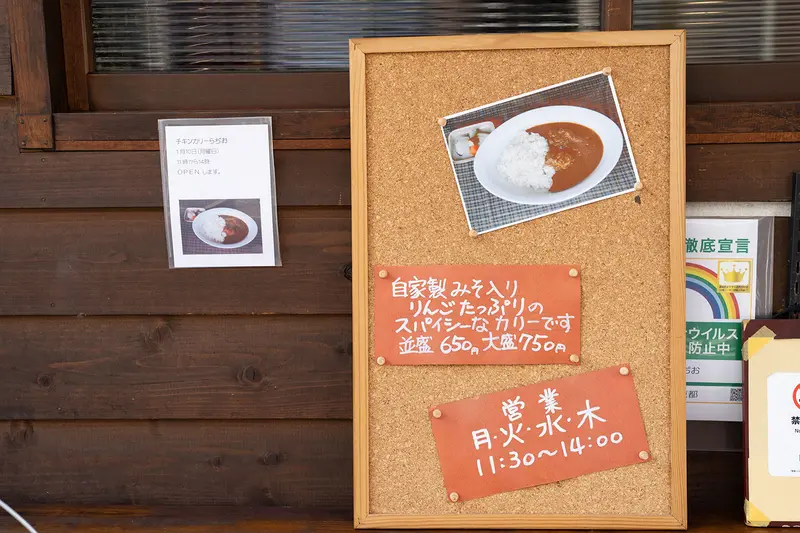 チキンカリーらぢお
11時から14時
OPEN します。
自家製みそ入り
りんごたっぷりの
スパイシーなカリーです
並盛 650円 大盛750円
営業
月・火・水・木
11:30〜14:00
徹底宣言
ウイルス
防止中
ぢお
都
禁
No